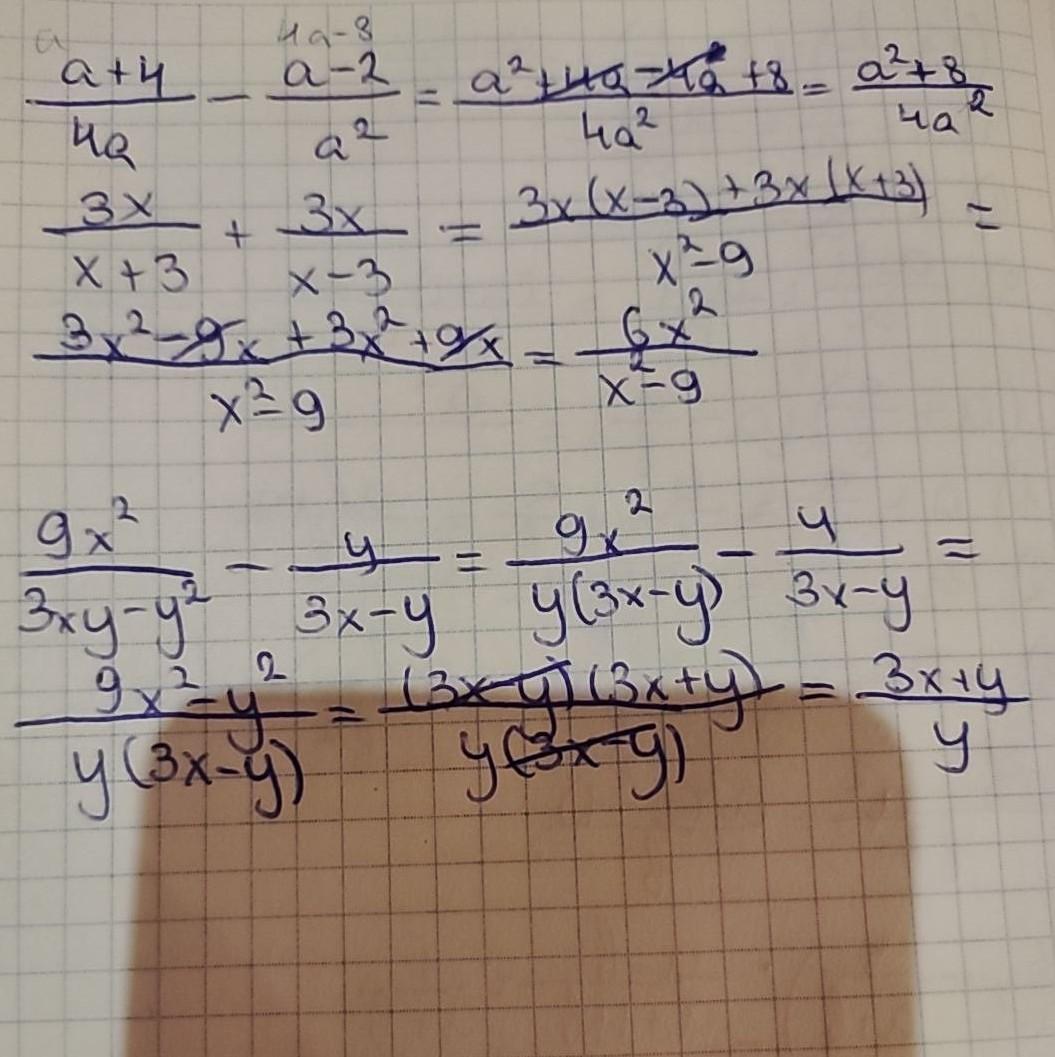 a 4a-8
(a+4)/(4a) - (a-2)/(a²) = (a²+4a-4a+8)/(4a²) = (a²+8)/(4a²)
(3x)/(x+3) + (3x)/(x-3) = (3x(x-3)+3x(x+3))/(x²-9) =
(3x²-9x+3x²+9x)/(x²-9) = (6x²)/(x²-9)
(9x²)/(3xy-y²) - (y)/(3x-y) = (9x²)/(y(3x-y)) - (y)/(3x-y) =
(9x²-y²)/(y(3x-y)) = ((3x-y)(3x+y))/(y(3x-y)) = (3x+y)/(y)